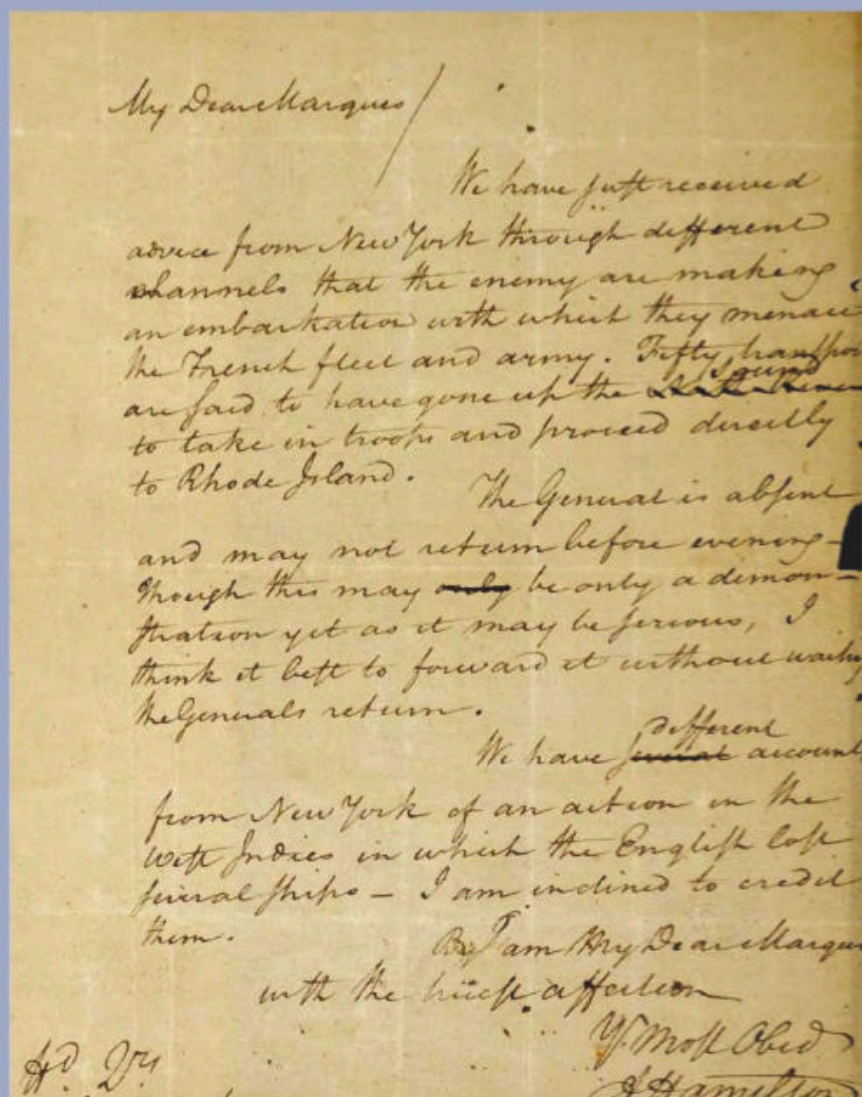 My Dear Marquis
We have just received
advice from New York through different
channels that the enemy are making
an embarkation with which they menace
the French fleet and army. Fifty transpor
sound
are said to have gone up the North River
to take in troops and proceed directly
to Rhode Island.
The General is absent
and may not return before evening–
though this may only be only a demon–
stration yet as it may be serious, I
think it best to forward it without waiting
the Generals return.
different
We have several account
from New York of an action in the
West Indies in which the English lost
several ships – I am inclined to credit
them.
I am My Dear Marqui
with the truest affection
Yr. Most Obed
A Hamilton
Hd. Qrs